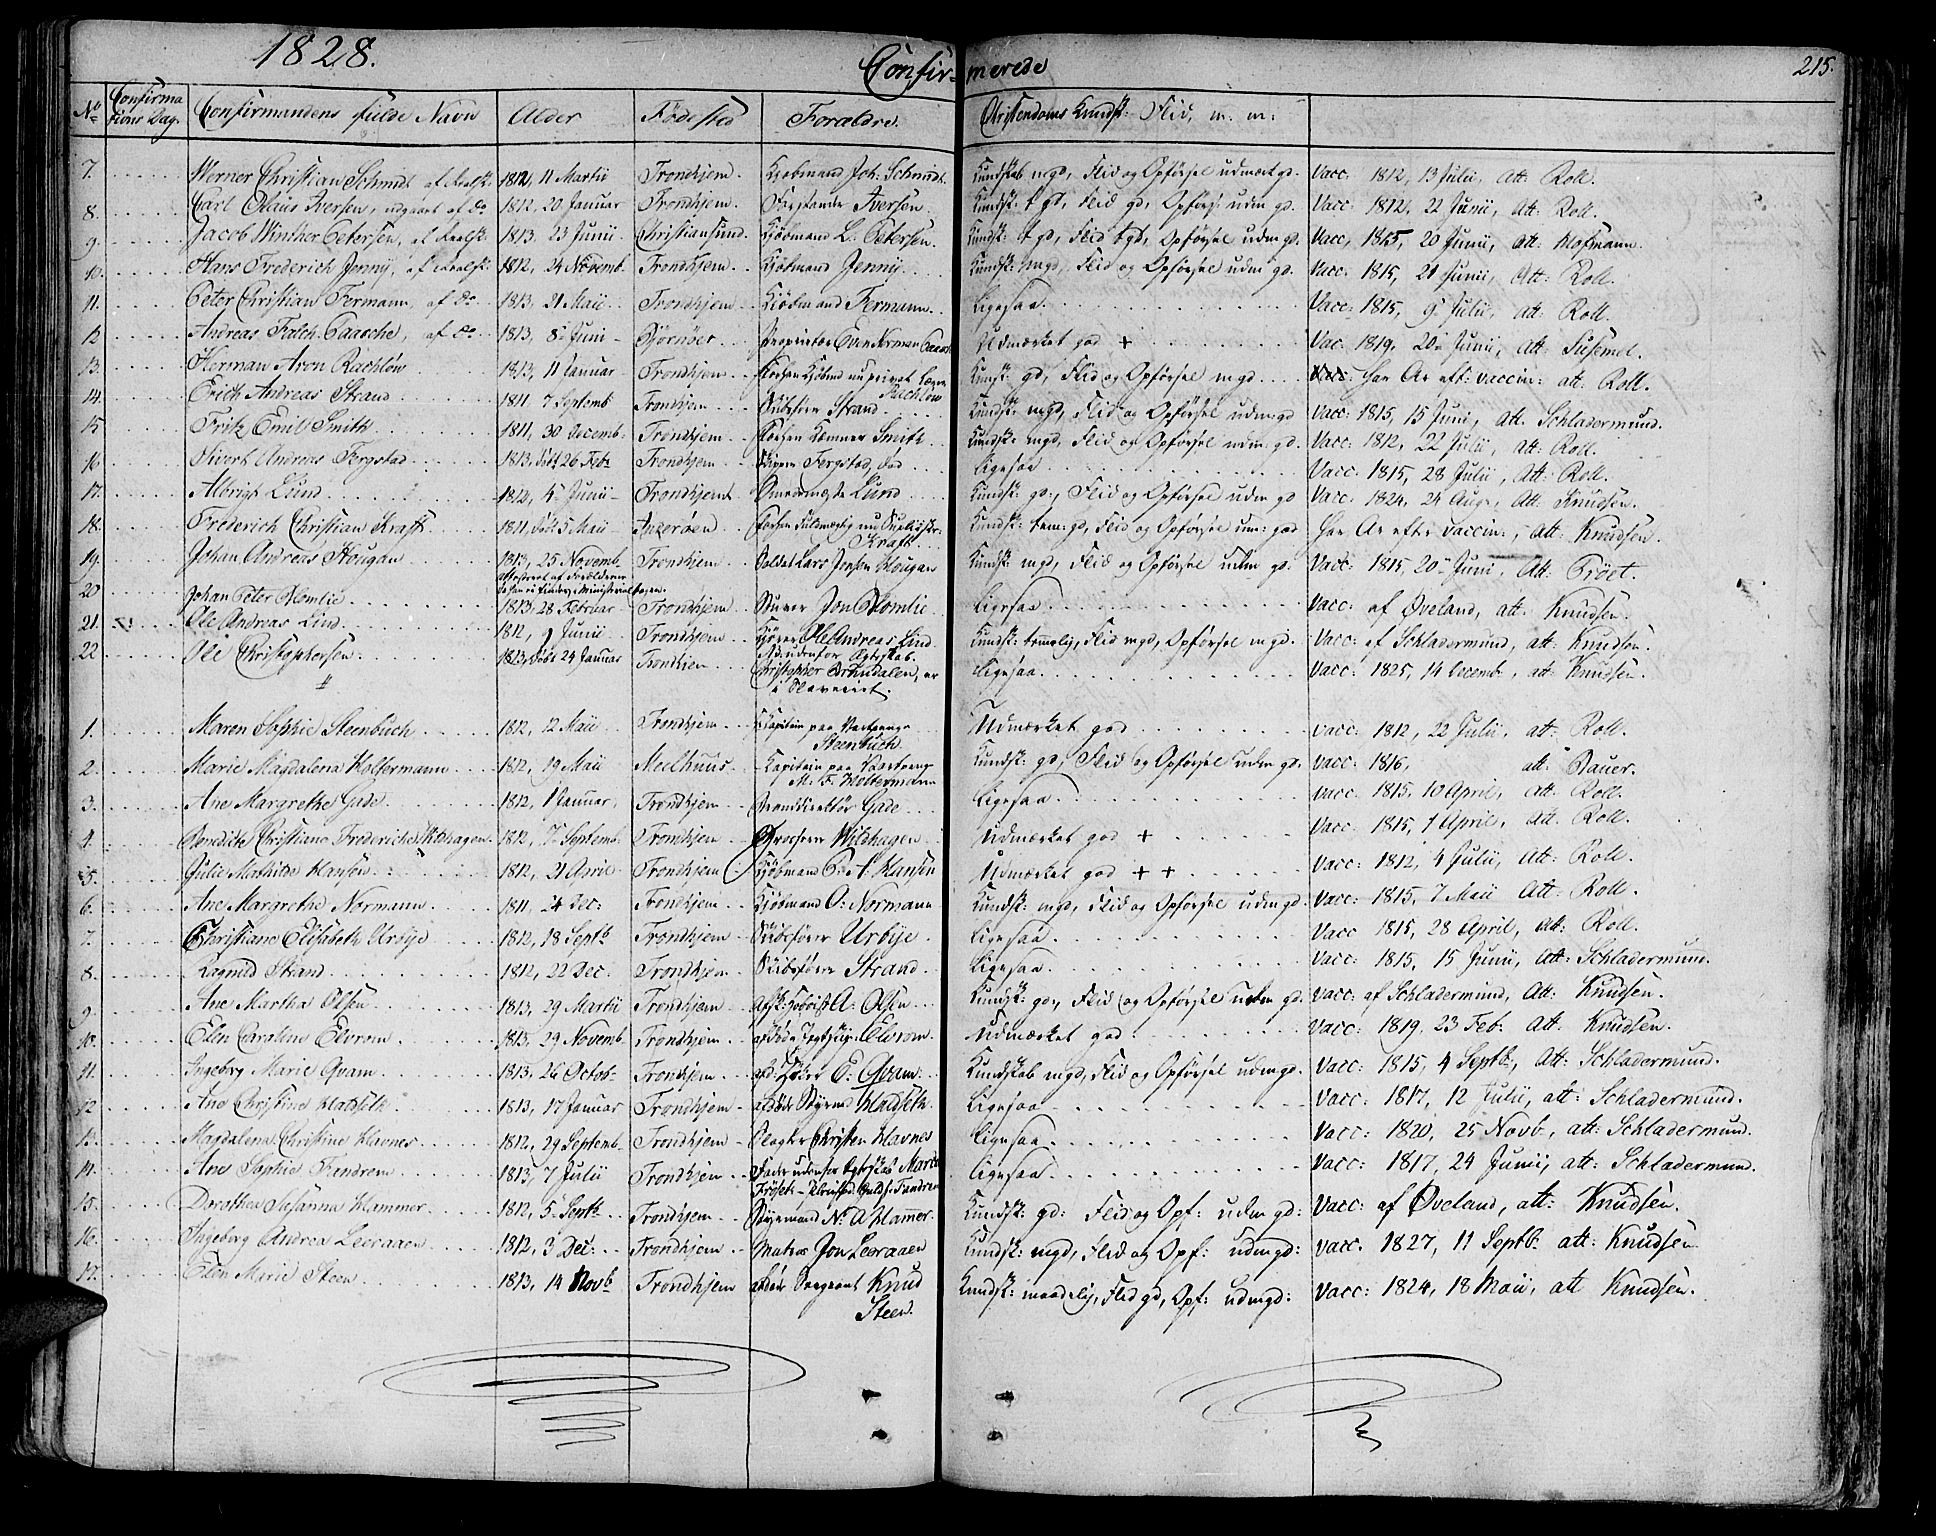 1828.
Confirmerede
215.
No Confirmations Dag. Confirmandens fulde Navn Alder Fødested Forældre. Christendoms Kundsk: Flid, m. m:
7. Werner Christian Schmidt af Realsk. 1812, 11 Martii Trondhjem. Kjøbmand Joh: Schmidt. Kundskab mgd, Flid og Opførsel udmærk gd. Vacc: 1812, 13 Julii, att: Roll.
8. Carl Claus Iversen, udgaaet af do 1812, 20 Januar Trondhjem. Iversen. Kundsk: t gd, Flid gd, Opførs: udm gd. Vacc: 1812, 22 Junii, att: Roll.
9. Jacob Winther Petersen, af Realsk. 1813. 23 Junii Christiansund. Kjøbmand L. Petersen. Kundsk: t gd, Flid tgd, Opførsel udm gd. Vacc, 1815, 20 Junii, att: Hofmann.
10. Hans Frederich Jenny, af Realsk. 1812, 24 Novemb. Trondhjem. Kjøbmand Jenny. Kundsk: mgd, Flid og Opførsel udm gd. Vacc: 1815, 21 Junii, att: Roll.
11. Peter Christian Fermann, af do 1813. 21 Maii Trondhjem. Kjøbmand Fermann. Ligesaa. Vacc: 1815, 9 Julii, att: Roll.
12 Andreas Falch Paasche, af do 1813, 8 Juni Bjørnøer Proprietær Even Norman Paasche Udmærket god + Vac: 1819, 20 Junii, att: Susemel.
13. Herman Aron Rachlow 1813, 11 Januar Trondhjem. forhen Kjøbmd nu privat Lærer Rachlow Kundsk: gd, Flid og Opførsel mgd. har Ar eft: vaccin: att: Roll.
14. Erich Andreas Strand 1811. 7 Septemb Trondhjem. Strand. Kundsk: mgd, Flid og Opførsel udmgd Vacc: 1815, 15 Juni, att. Schladermund.
15 Fritz Emil Smith. 1811, 30 Decemb. Trondhjem forhen Kæmner Smith. Kundsk: mgd, Flid og Opførsel udm gd. Vacc: 1812, 22 Julii, att: Roll.
16 Sivert Andreas Fergstad 1813. døbt 26 Febr Trondhjem Fergstad, død Ligesaa Vacc: 1815, 28 Julii, att: Roll.
17. Albrigt Lund 1812, 4 Junii Trondhjem Smedemester Lund Kundsk: gd:, Flid og Opførsel udm gd Vacc: 1824, 24 Aug:, att: Knudsen.
18. Frederich Christian Kraft 1811, døbt 5 Maii Inderøen forhen Fuldmægtig nu Kraft Kundsk: tem: gd, Flid og Opførsel um: god har Ar efter vaccin:, att: Knudsen.
19. Johan Andreas Hougan 1813, 25 Novemb Trondhjem. Soldat Lars Jensen Hougan Kundsk: mgd, Flid og Opførsel udm gd: Vacc: 1815, 20 Juni, att: Prøet.
attesteret af Forældrene
20 Johan Peter Blomlie 1813. 28 Februar Trondhjem Jon Blomlie Ligesaa Vacc: af Øveland, att: Knudsen.
21. Ole Andreas Lind 1812, 9 Junii Trondhjem Ole Andreas Lind Kundsk: temmelig, Flid mgd, Opførsel mgd. Vacc: af Schladermund, att: Knudsen.
22 Ole Christophersen 1813, døbt 24 Januar Trondhjem udenfor Ægteskab. Christopher er i Slaveriet. Ligesaa Vacc: 1825, 14 Decemb, att: Knudsen.
1. Maren Sophie Steenbuch 1812, 12 Maii Trondhjem Kapitein paa Steenbuch Udmærket god vacc: 1812, 22 Julii, att: Roll.
2. Marie Magdalena Holtermann 1812, 19 Maii Meelhuus Kapitein paa M. F. Holtermann Kundsk: gd, Flid og Opførsel udm gd. Vacc: 1816. att: Bauer.
3. Ane Margrethe Gade 1812, 1 Januar, Trondhjem Branddirektør Gade Ligesaa. Vacc: 1815, 10 April, att: Roll.
4. Benedicte Christiane Frederiche Wildhagen 1812, 7 Septemb Trondhjem Grosserer Wildhagen Udmærket god + Vacc: 1815, 7 April, att: Roll.
5. Julie Mathilde Hansen 1812, 21 April Trondhjem Kjøbmand P: A: Hansen Udmærket god + + Vacc: 1812, 4 Julii, att: Roll.
6. Ane Margrethe Normann 1811, 24 Dec: Trondhjem Kjøbmand O: Normann Kundsk: mgd, Flid og Opførsel udmgd. Vacc: 1815, 7 Maii att: Roll.
7. Christiane Elisabeth Urbye 1812, 18 Septb Trondhjem Urbye Ligesaa. Vacc 1815, 28 April, att: Roll.
8. Ragnild Strand 1812, 22 Dec: Trondhjem Strand Ligesaa. Vacc: 1815, 15 Junii, att: Schladermund.
9. Ane Martha Olsen 1813, 29 Martii Trondhjem A: Olsen Kundsk: gd, Flid og Opførsel udm gd. Vacc: af Schladermund, att: Knudsen.
10. Elen Caroline Elvrom 1813. 29 Novemb Trondhjem afdøde Elvrom. Udmærket god: Vacc: 1819, 23 Feb: att: Knudsen.
11. Ingeborg Marie Qvam 1813. 26 Octob: Trondhjem afd: E: Qvam Kundskab mgd, Flid og Opførsel udmgd. Vacc: 1815, 4 Septb, att: Schladermund.
12 Ane Christine Hadseth 1813, 17 Januar Trondhjem afdøde Hadseth. Ligesaa Vacc: 1817, 12 Julii, att: Schladermund.
13. Magdalena Christine Havnes 1812, 29 Septemb Trondhjem Slagter Christen Havnes Ligesaa Vacc: 1820, 25 Novb, att: Schladermund.
14. Ane Sophie Fandrem 1813, 7 Julii Trondhjem født udenfor Ægteskab Maria Fandrem Ligesaa Vacc: 1817, 24 Junii, att: Schladermund.
15. Dorothea Susanna Hammer 1812, 5 Septb Trondhjem N: A Hammer. Kundsk: gd: Flid og Opf: udm gd: Vacc: af Øveland, att: Knudsen.
16. Ingeborg Andrea Leeraaen 1812, 3 Dec: Trondhjem Matros Jon Leeraaen Kundsk: mgd, Flid og Opf: udmgd: vacc. 1827, 11 Septb att: Knudsen
17. Elen Marie Steen 1813, 14 Novb Trondhjem afdøde Sergeant Knud Steen. Kundsk: maadelig, Flid gd, Opf: udmgd: Vacc: 1824, 18 Maii, att Knudsen.